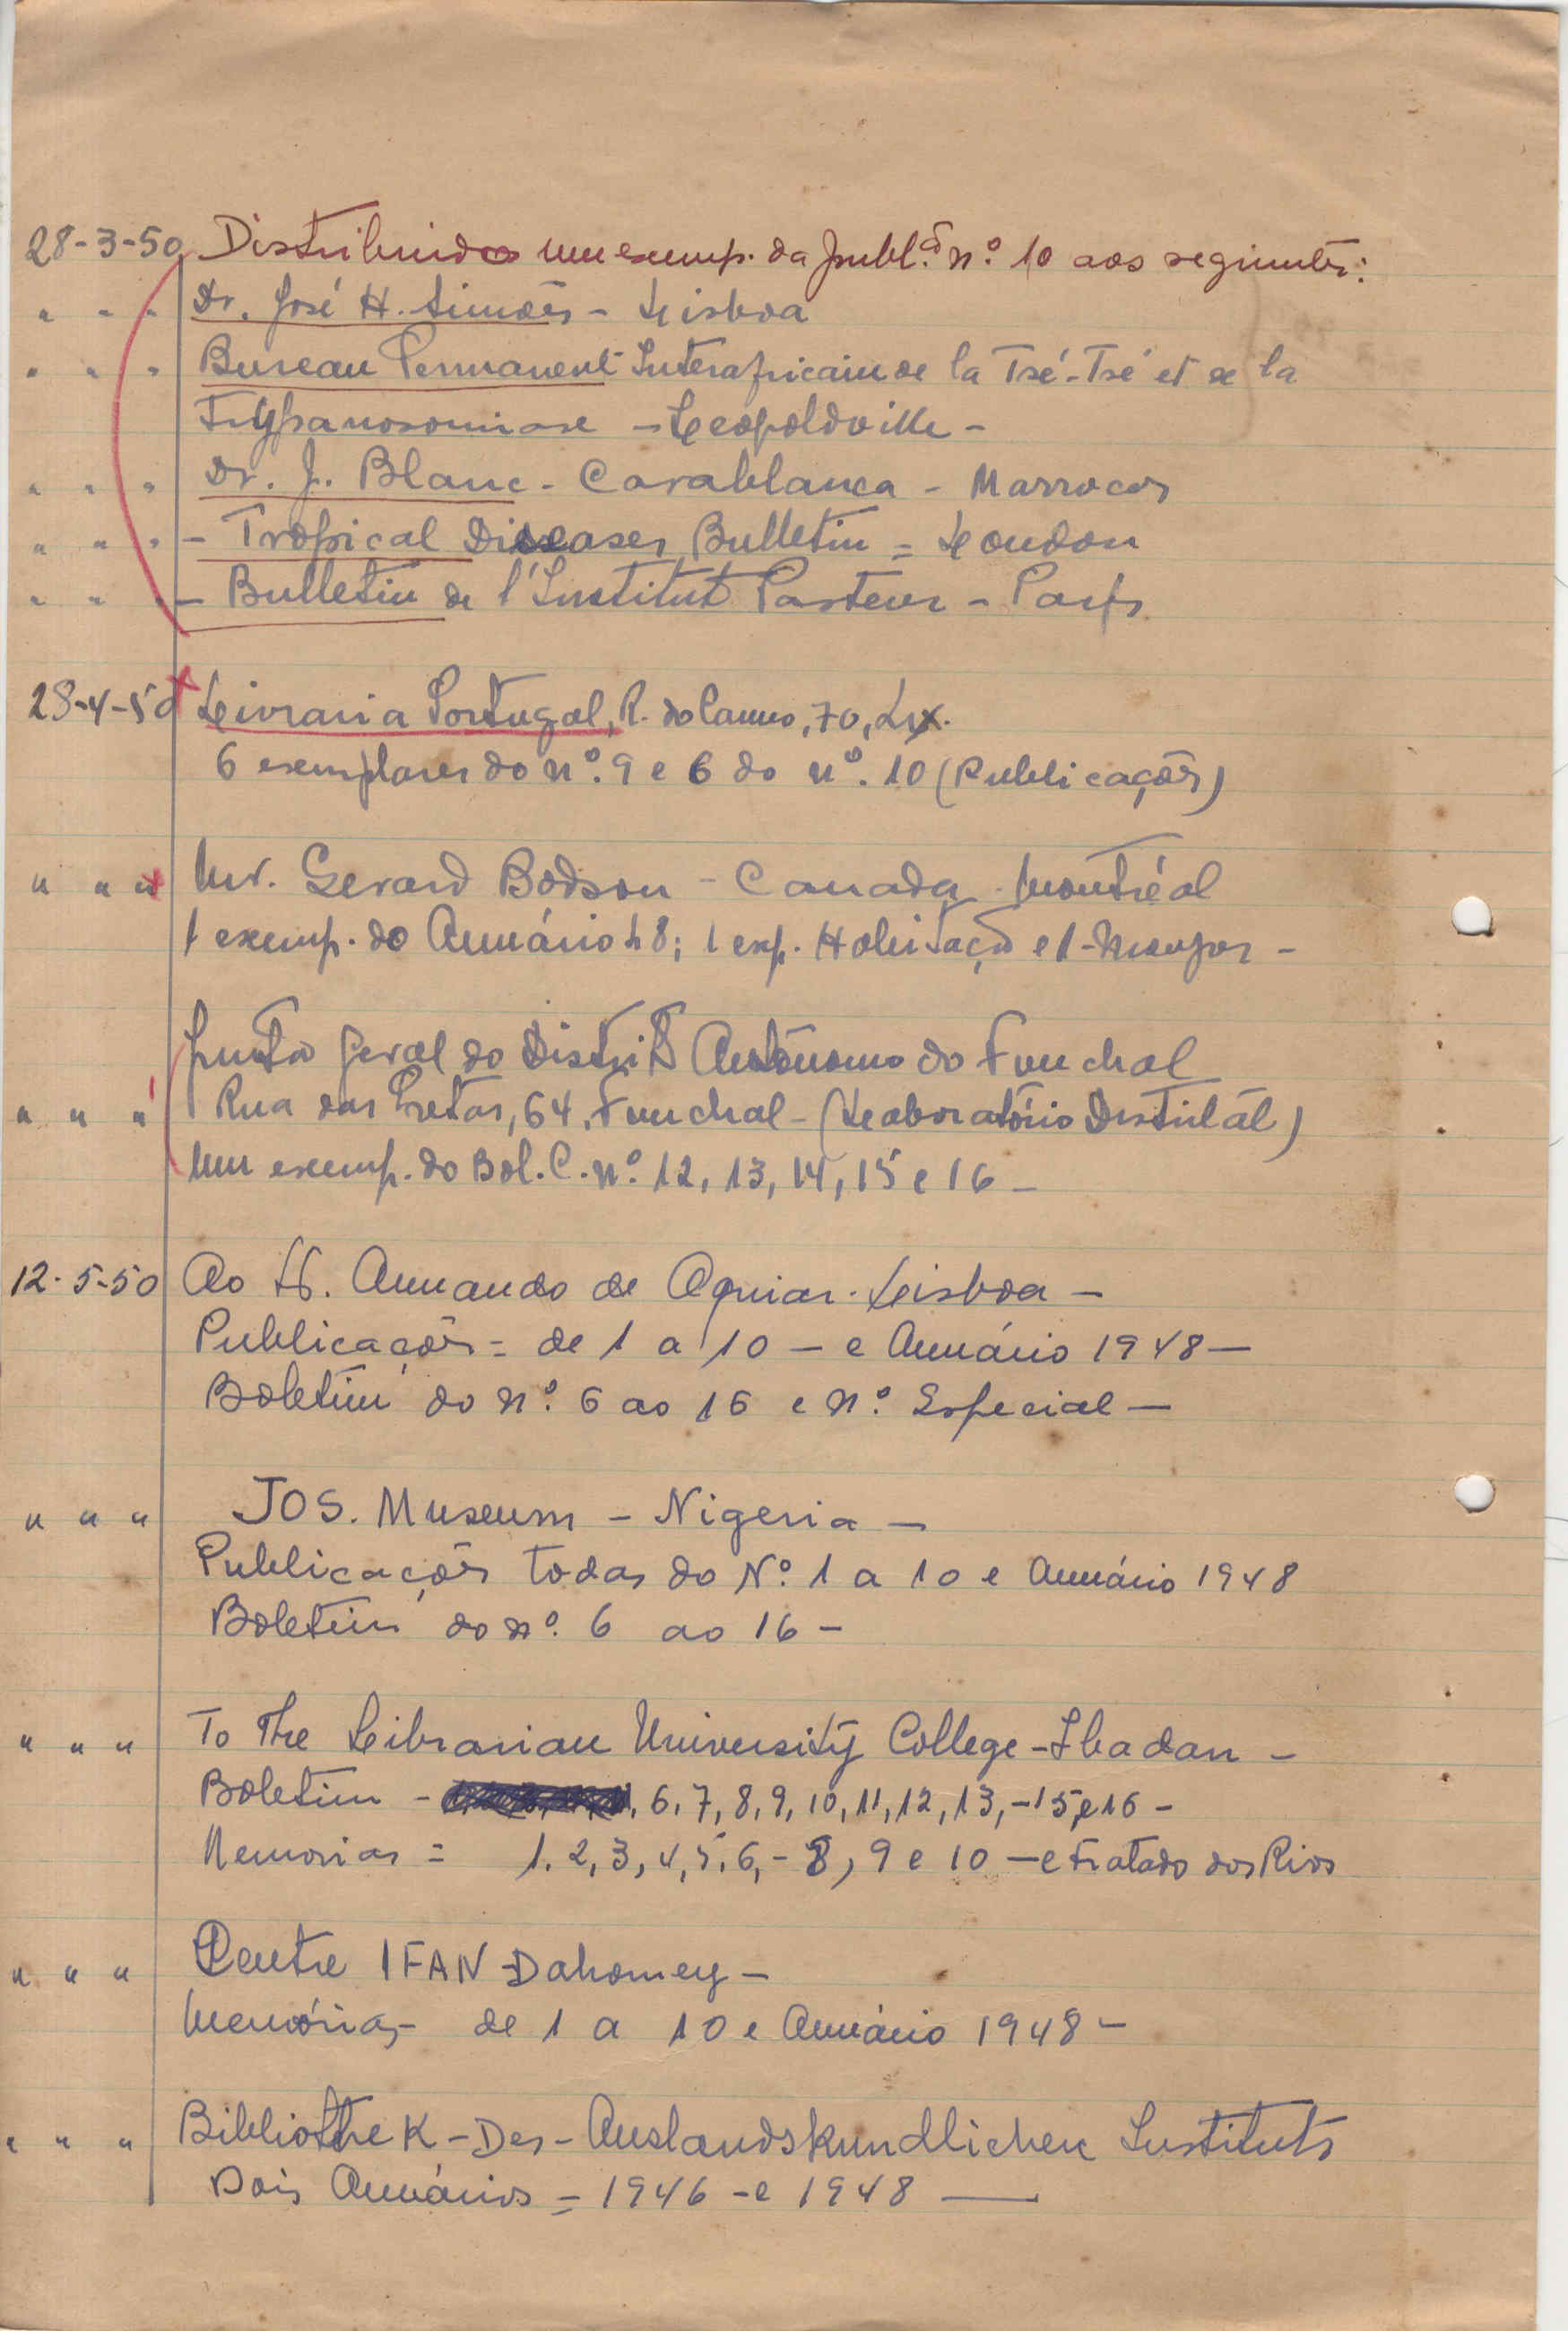 28-3-50 Distribuidos um exemp. da publ.ª nº 10 aos seguintes:
" " " Dr. José H. Simões - Lisboa
" " " Bureau Permanent Interafricain de la Tsé-Tsé et de la
Trypanosomiase - Leopoldville -
" " " Dr. J. Blanc - Casablanca - Marrocos
" " " - Tropical Diseases Bulletin = London
" " " - Bulletin de l'Institut Pasteur - Paris
28-4-50 Livraria Portugal, R. do Carmo, 70, Lix.
6 exemplares do nº. 9 e 6 do nº. 10 (Publicações)
" " " Mr. Gerard Bodson - Canada - Montréal
1 exemp. do Anuário 48; 1 exp. Habitação e 1
Junta Geral do Distrito Autónomo do Funchal
" " " Rua das Pretas, 64, Funchal - (Laboratório Distrital)
um exemp. do Bol. C. nº. 12, 13, 14, 15 e 16 -
12-5-50 Ao Armando de Aguiar - Lisboa -
Publicações = de 1 a 10 - e Anuário 1948 -
Boletim do nº. 6 ao 16 e nº. Especial -
" " " JOS. Museum - Nigeria -
Publicações todas do Nº. 1 a 10 e Anuário 1948
Boletim do nº. 6 ao 16 -
" " " To The Librarian University College - Ibadan -
Boletim - , 6, 7, 8, 9, 10, 11, 12, 13, - 15 e 16 -
Memorias = 1, 2, 3, 4, 5, 6, - 8, 9 e 10 - e Tratado dos Rios
" " " Centre IFAN - Dahomey -
Memórias - de 1 a 10 e Anuário 1948 -
" " " Bibliothek - Des - Auslandskundlichen Instituts
Dois Anuários = 1946 - e 1948 —